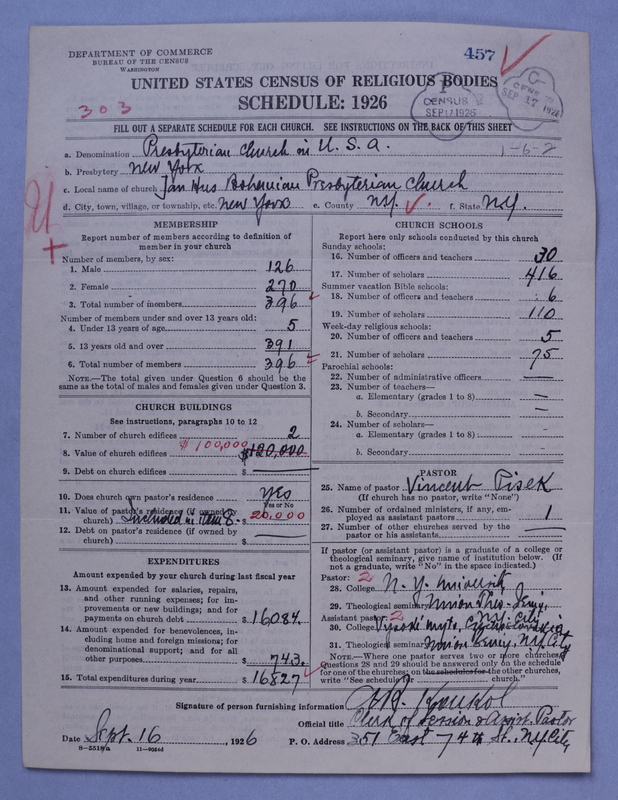 DEPARTMENT OF COMMERCE
BUREAU OF THE CENSUS
WASHINGTON
457
UNITED STATES CENSUS OF RELIGIOUS BODIES
303
SCHEDULE: 1926
CENSUS
SEP 17 1926
C
CENSUS
SEP 17 1926
FILL OUT A SEPARATE SCHEDULE FOR EACH CHURCH. SEE INSTRUCTIONS ON THE BACK OF THIS SHEET
a. Denomination Presbyterian Church in U.S.A. 1-6-2
b. Presbytery New York
c. Local name of church Jan Hus Bohemian Presbyterian Church
d. City, town, village, or township, etc. New York e. County N.Y. f. State N.Y.
MEMBERSHIP
Report number of members according to definition of
member in your church
Number of members, by sex:
1. Male 126
2. Female 270
3. Total number of members 396
Number of members under and over 13 years old:
4. Under 13 years of age 5
5. 13 years old and over 391
6. Total number of members 396
NOTE.—The total given under Question 6 should be the
same as the total of males and females given under Question 3.
CHURCH BUILDINGS
See instructions, paragraphs 10 to 12
7. Number of church edifices 2
$100,000
8. Value of church edifices $120,000
9. Debt on church edifices $
10. Does church own pastor's residence Yes
Yes or No
11. Value of pastor's residence (if owned by
church) Included in item 8. $ 20,000
12. Debt on pastor's residence (if owned by
church) $
EXPENDITURES
Amount expended by your church during last fiscal year
13. Amount expended for salaries, repairs,
and other running expenses; for im-
provements or new buildings; and for
payments on church debt $16084.
14. Amount expended for benevolences, in-
cluding home and foreign missions; for
denominational support; and for all
other purposes 743.
15. Total expenditures during year $16827
CHURCH SCHOOLS
Report here only schools conducted by this church
Sunday schools:
16. Number of officers and teachers 30
17. Number of scholars 416
Summer vacation Bible schools:
18. Number of officers and teachers 6
19. Number of scholars 110
Week-day religious schools:
20. Number of officers and teachers 5
21. Number of scholars 75
Parochial schools:
22. Number of administrative officers —
23. Number of teachers—
a. Elementary (grades 1 to 8) —
b. Secondary —
24. Number of scholars—
a. Elementary (grades 1 to 8) -
b. Secondary -
PASTOR
25. Name of pastor Vincent Pisek
(If church has no pastor, write "None")
26. Number of ordained ministers, if any, em-
ployed as assistant pastors 1
27. Number of other churches served by the
pastor or his assistants —
If pastor (or assistant pastor) is a graduate of a college or
theological seminary, give name of institution below. (If
not a graduate, write "No" in the space indicated.)
Pastor: 2
28. College N.Y. University
29. Theological seminary Union Theo. Semy,
Assistant pastor: 2 N.Y. City
30. College Vysoke Myto, Czechoslovakia
31. Theological seminary Union Semy, N.Y. City
NOTE.—Where one pastor serves two or more churches,
Questions 28 and 29 should be answered only on the schedule
for one of the churches; on the schedules for the other churches,
write "See schedule for church."
Signature of person furnishing information Koukol
Official title Clerk of Session & Assist. Pastor
Date Sept. 16, 1926 P. O. Address 351 East 74th St., N.Y. City
8-5518a 11-9056d